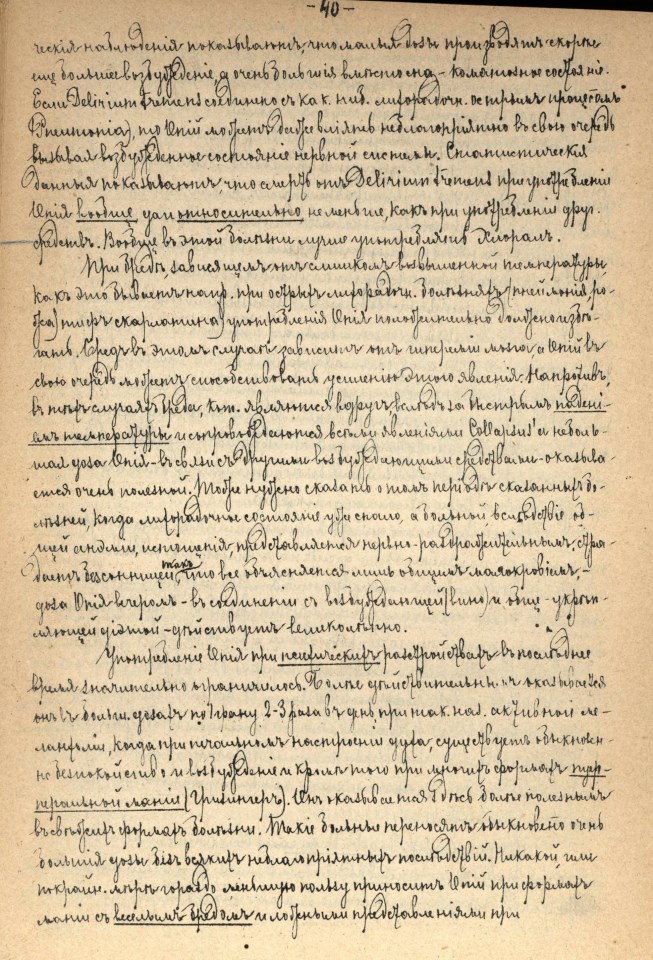 - 40 -
ческія наблюденія показываютъ, что малыя дозы производятъ скорѣе
еще большее возбужденіе, а очень большія вмѣсто сна - коматозное состояніе.
Если Delirium tremens соединено съ как. ниб. лихорадочн. острымъ процессомъ
(Pneumonia), то Опій можетъ даже вліять неблагопріятно въ свою очередь
вызывая возбужденное состояніе нервной системы. Статистическія
данныя показываютъ, что смерть отъ Delirium tremens при употребленіи
Опія вообще или относительно не меньше, какъ при употребленіи друг.
средствъ. Вообще въ этой болѣзни лучше употреблять Хлоралъ.
При бредѣ зависящемъ отъ слишкомъ возвышенной температуры
какъ это бываетъ напр. при острыхъ лихорадочн. болѣзняхъ (пнеймонія, ро-
жа, тифъ скарлатина) употребленія Опія положительно должно избѣ-
гать. Бредъ въ этомъ случаѣ зависитъ отъ гипереміи мозга, а Опій въ
свою очередь можетъ способствовать усиленію этого явленія. Напротивъ,
въ тѣхъ случаяхъ бреда, кот. являются вдругъ вслѣдъ за быстрымъ паденi-
емъ температуры и сопровождаются всѣми явленіями Collapsus'а неболь-
шая доза Опія - въ связи съ другими возбуждающими средствами - оказыва-
ется очень полезной. Тоже нужно сказать о томъ періодѣ сказанныхъ бо-
лѣзней, когда лихорадочное состояніе уже спало, а больной вслѣдствіе об-
щей анэміи, истощенія, представляется нервно-раздражительнымъ, стра-
даетъ безсонницей, такъ что все объясняется лишь общимъ малокровіемъ, -
доза Опія вечеромъ - въ соединеніи съ возбуждающей (вино) и обще-укрѣп-
ляющей діэтой - дѣйствуетъ великолѣпно.
Употребленіе Опія при психическихъ разстройствахъ въ послѣднее
время значительно ограничилось. Болѣе дѣйствительнымъ оказывается
онъ въ больш. дозахъ по 1 грану 2-3 раза въ день при так. наз. активной ме-
ланхоліи, когда при печальномъ настроеніи духа, существуетъ обыкновен-
но безпокойство и возбужденіе и кромѣ того при многихъ формахъ пуер-
перальной маніи (Гризингеръ). Онъ оказывается здѣсь болѣе полезнымъ
въ свѣжихъ формахъ болѣзни. Такіе больные переносятъ обыкновенно очень
большія дозы безъ всякихъ неблагопріятныхъ послѣдствій. Никакой или
по крайн. мѣрѣ гораздо меньшую пользу приноситъ Опій при формахъ
маніи съ веселымъ бредомъ и ложными представленіями при